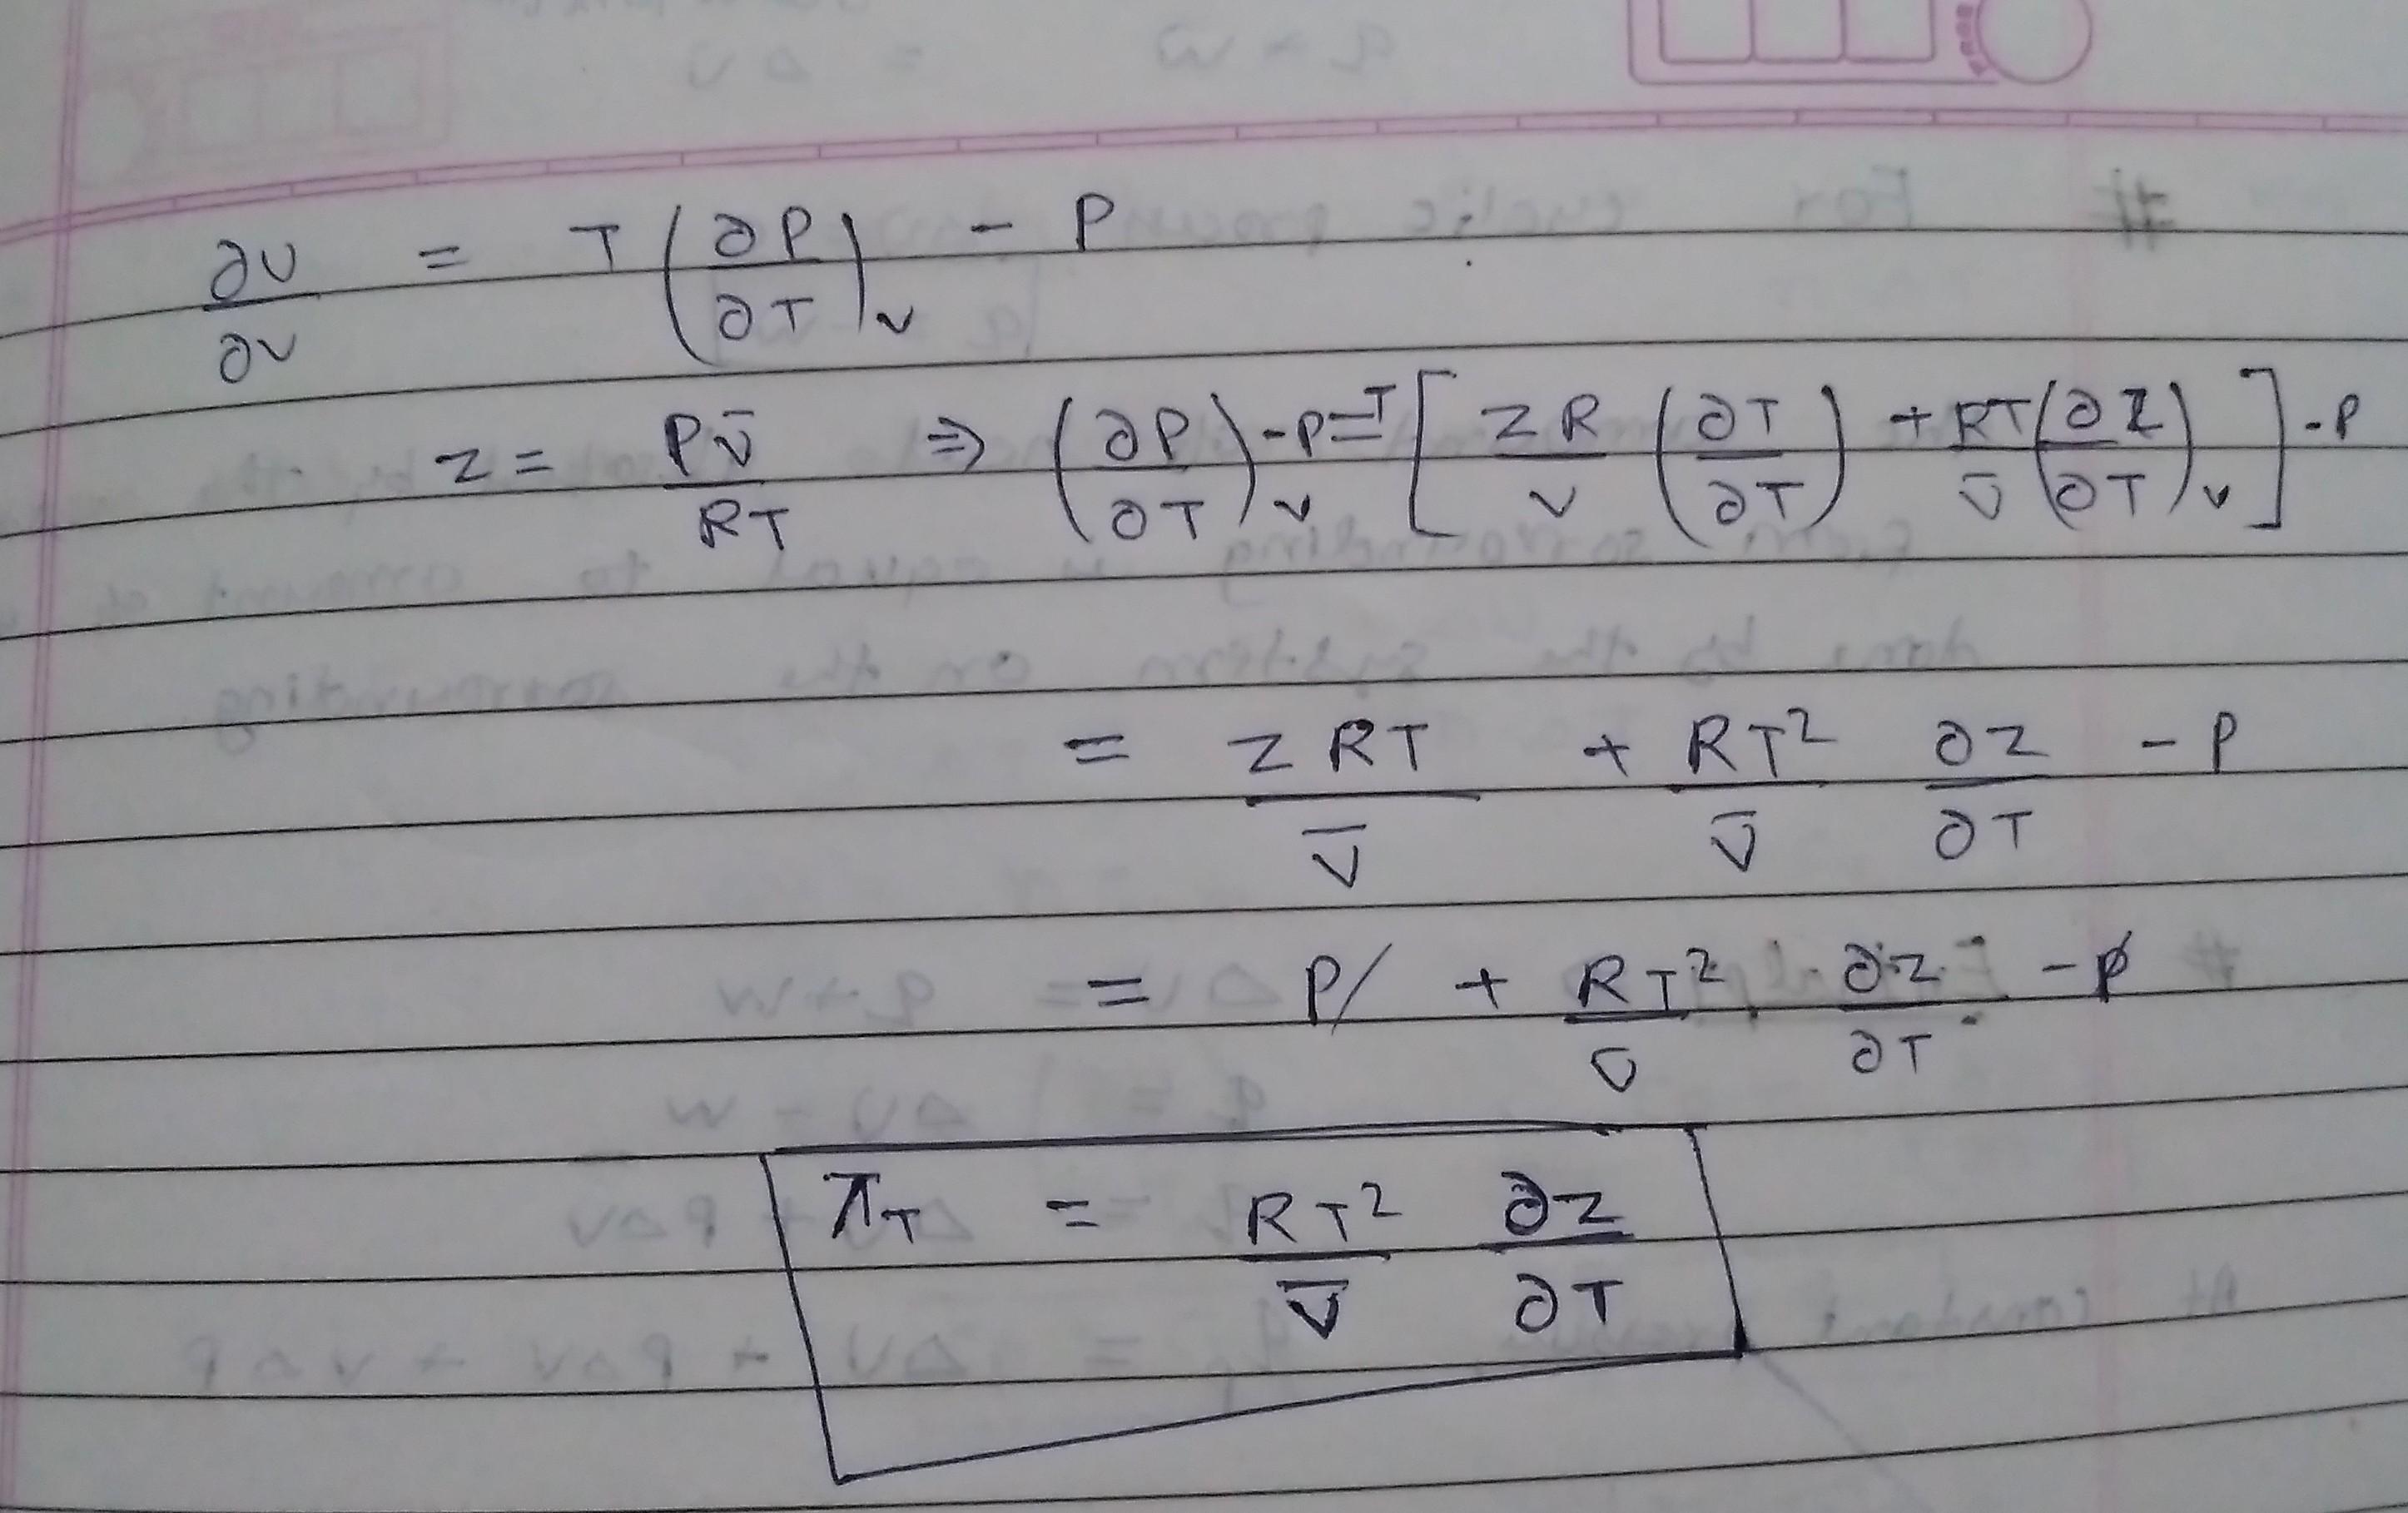 ∂U/∂V = T(∂P/∂T)_V - P
Z = PV̄/RT ⇒ (∂P/∂T)_V - P = T[ZR/V (∂T/∂T) + RT/V̄ (∂Z/∂T)_V] - P
= ZRT/V̄ + RT²/V̄ ∂Z/∂T - P
= P + RT²/V̄ ∂Z/∂T - P
π_T = RT²/V̄ ∂Z/∂T